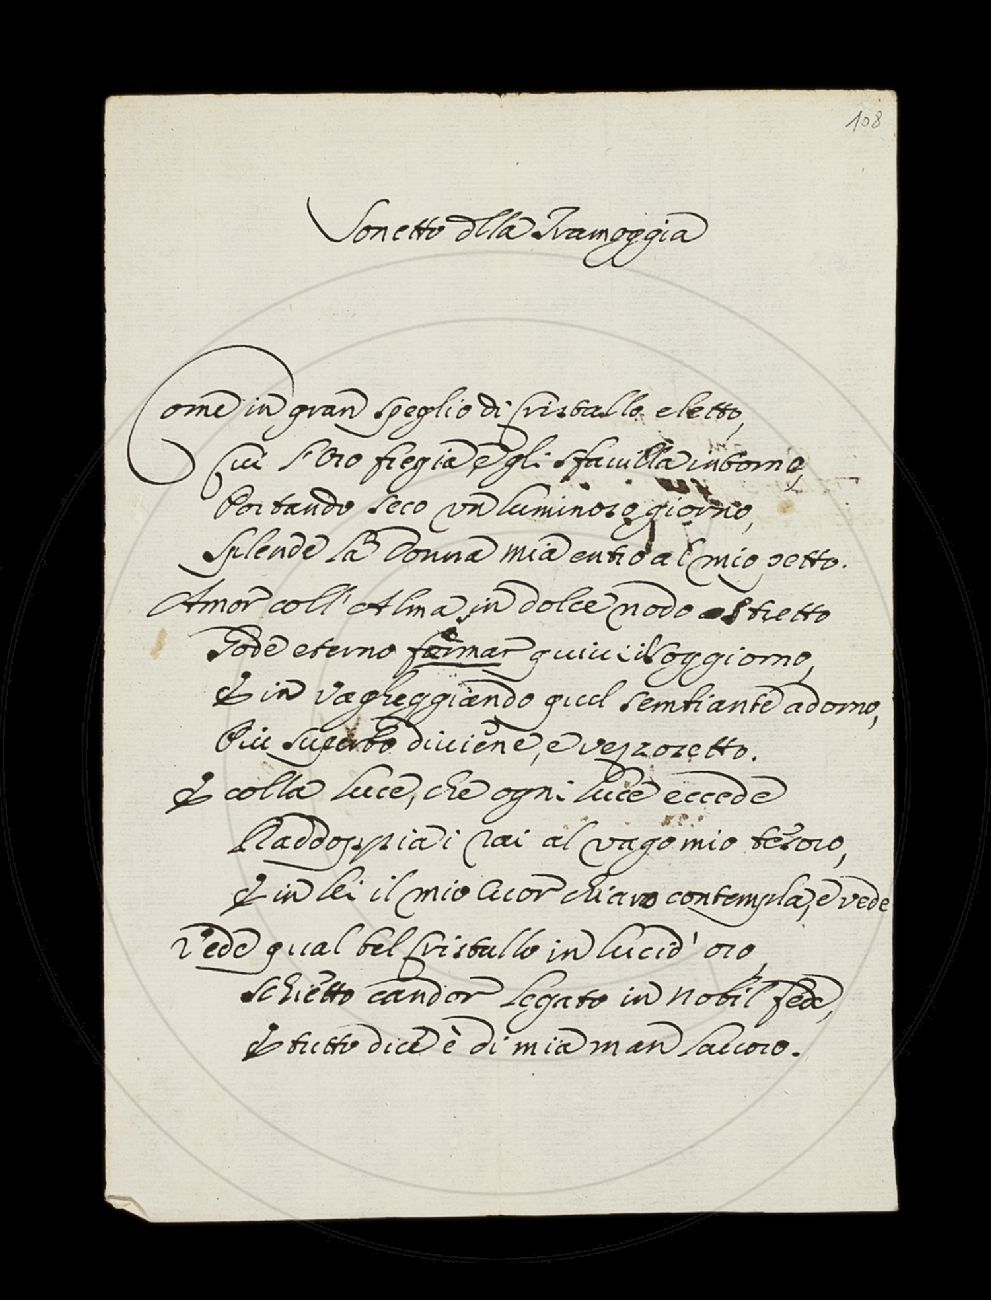 108
Sonetto della Tramoggia
Come in gran speglio di cristallo eletto,
Cui l'Oro fregia, e gli sfavilla intorno,
Portando seco un luminoso giorno,
Splende la Donna mia entro al mio petto.
Amor coll'Alma in dolce nodo stretto
Gode eterno fermar quivi il soggiorno,
E in vagheggiando quel sembiante adorno,
Più superbo diviene, e vezzosetto.
E colla luce, che ogni luce eccede
Raddoppia i rai al vago mio tesoro,
E in lei il mio Cuor chiaro contempla, e vede
Vede qual bel cristallo in lucid'oro,
Schietto candor legato in nobil fede,
E tutto dice è di mia man lavoro.